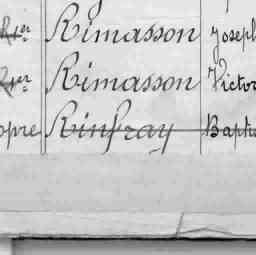 Rimasson Joseph
Rimasson Victor
opre Rinfray Bapti